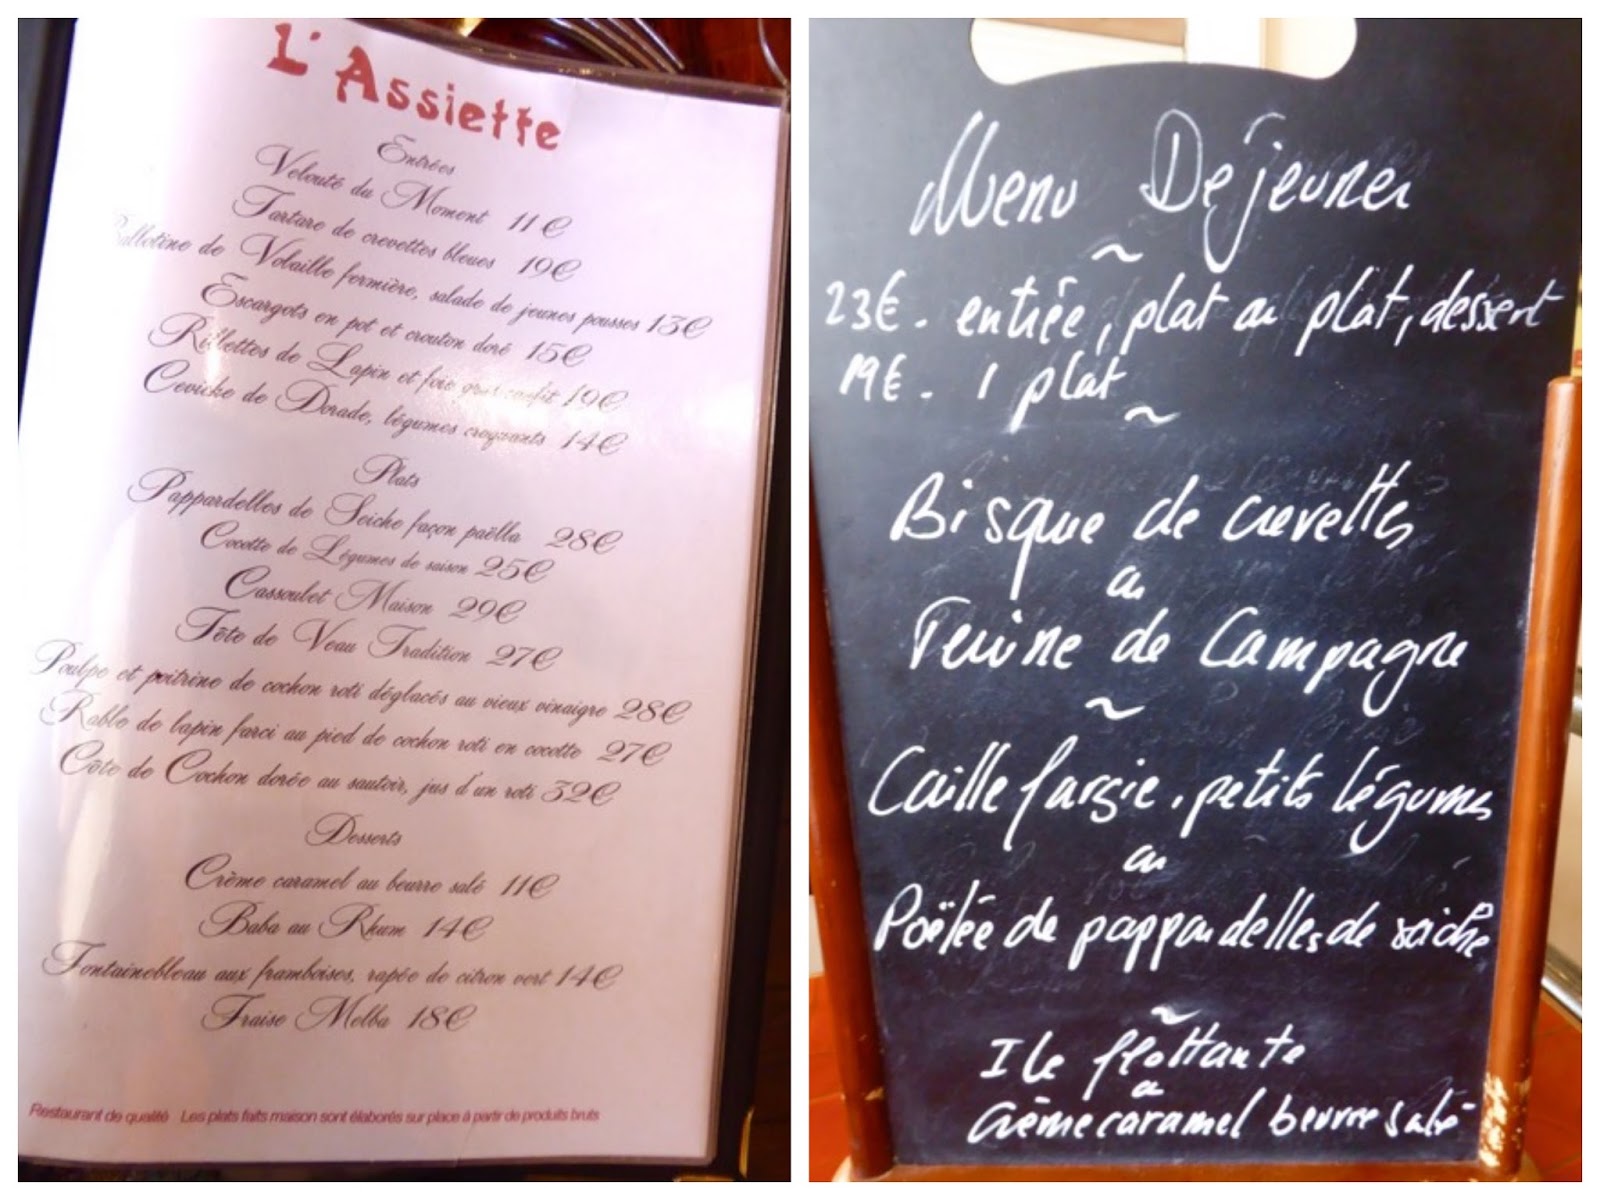 L'Assiette
Entrées
Velouté du Moment 11€
Tartare de crevettes bleues 19€
Ballotine de Volaille fermière, salade de jeunes pousses 13€
Escargots en pot et crouton doré 15€
Rillettes de Lapin et foie gras confit 19€
Ceviche de Dorade, légumes croquants 14€
Plats
Pappardelles de Seiche façon paëlla 28€
Cocotte de Légumes de saison 25€
Cassoulet Maison 29€
Tête de Veau Tradition 27€
Poulpe et poitrine de cochon roti déglacés au vieux vinaigre 28€
Rable de lapin farci au pied de cochon roti en cocotte 27€
Côte de Cochon dorée au sautoir, jus d'un roti 32€
Desserts
Crème caramel au beurre salé 11€
Baba au Rhum 14€
Fontainebleau aux framboises, rapée de citron vert 14€
Fraise Melba 18€
Restaurant de qualité Les plats faits maison sont élaborés sur place à partir de produits bruts
Menu Déjeuner
~
23€. entrée, plat ou plat, dessert
19€. 1 plat
~
Bisque de crevettes
ou
Terrine de Campagne
~
Caille farcie. petits légumes
ou
Poëlée de pappardelles de seiche
~
Ile flottante
ou
Crème caramel beurre salé